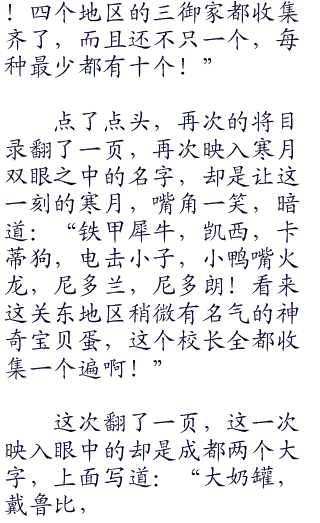 ！四个地区的三御家都收集
齐了，而且还不只一个，每
种最少都有十个！”
点了点头，再次的将目
录翻了一页，再次映入寒月
双眼之中的名字，却是让这
一刻的寒月，嘴角一笑，暗
道：“铁甲犀牛，凯西，卡
蒂狗，电击小子，小鸭嘴火
龙，尼多兰，尼多朗！看来
这关东地区稍微有名气的神
奇宝贝蛋，这个校长全都收
集一个遍啊！”
这次翻了一页，这一次
映入眼中的却是成都两个大
字，上面写道：“大奶罐，
戴鲁比，